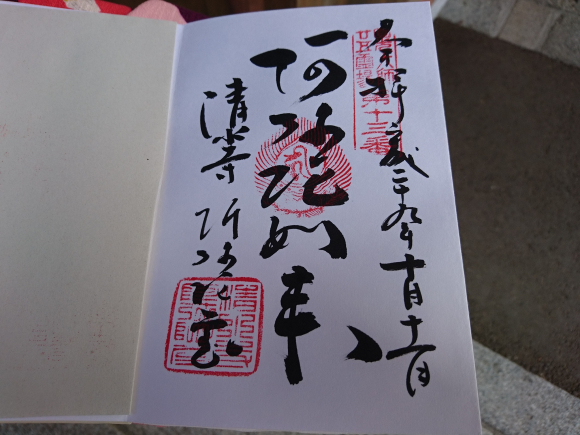 奉拝 平成二十九年十月十一日
廿五霊場
第十三番
阿弥陀如来
清水寺 阿弥陀堂